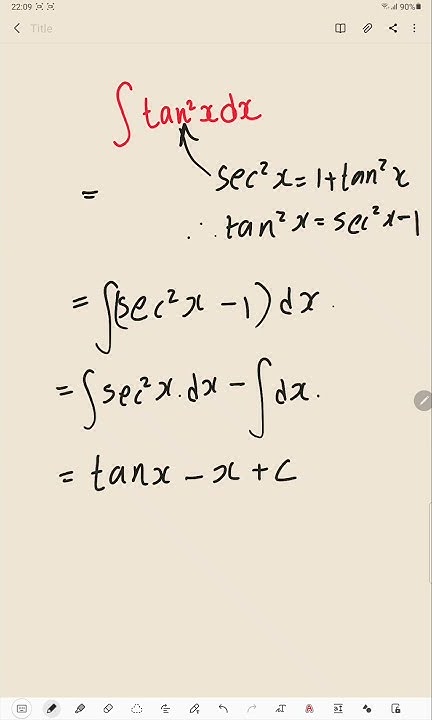 22:09 90%
Title
∫ tan²x dx
= sec²x = 1 + tan²x
∴ tan²x = sec²x - 1
= ∫(sec²x - 1) dx.
= ∫ sec²x. dx - ∫ dx.
= tanx - x + c